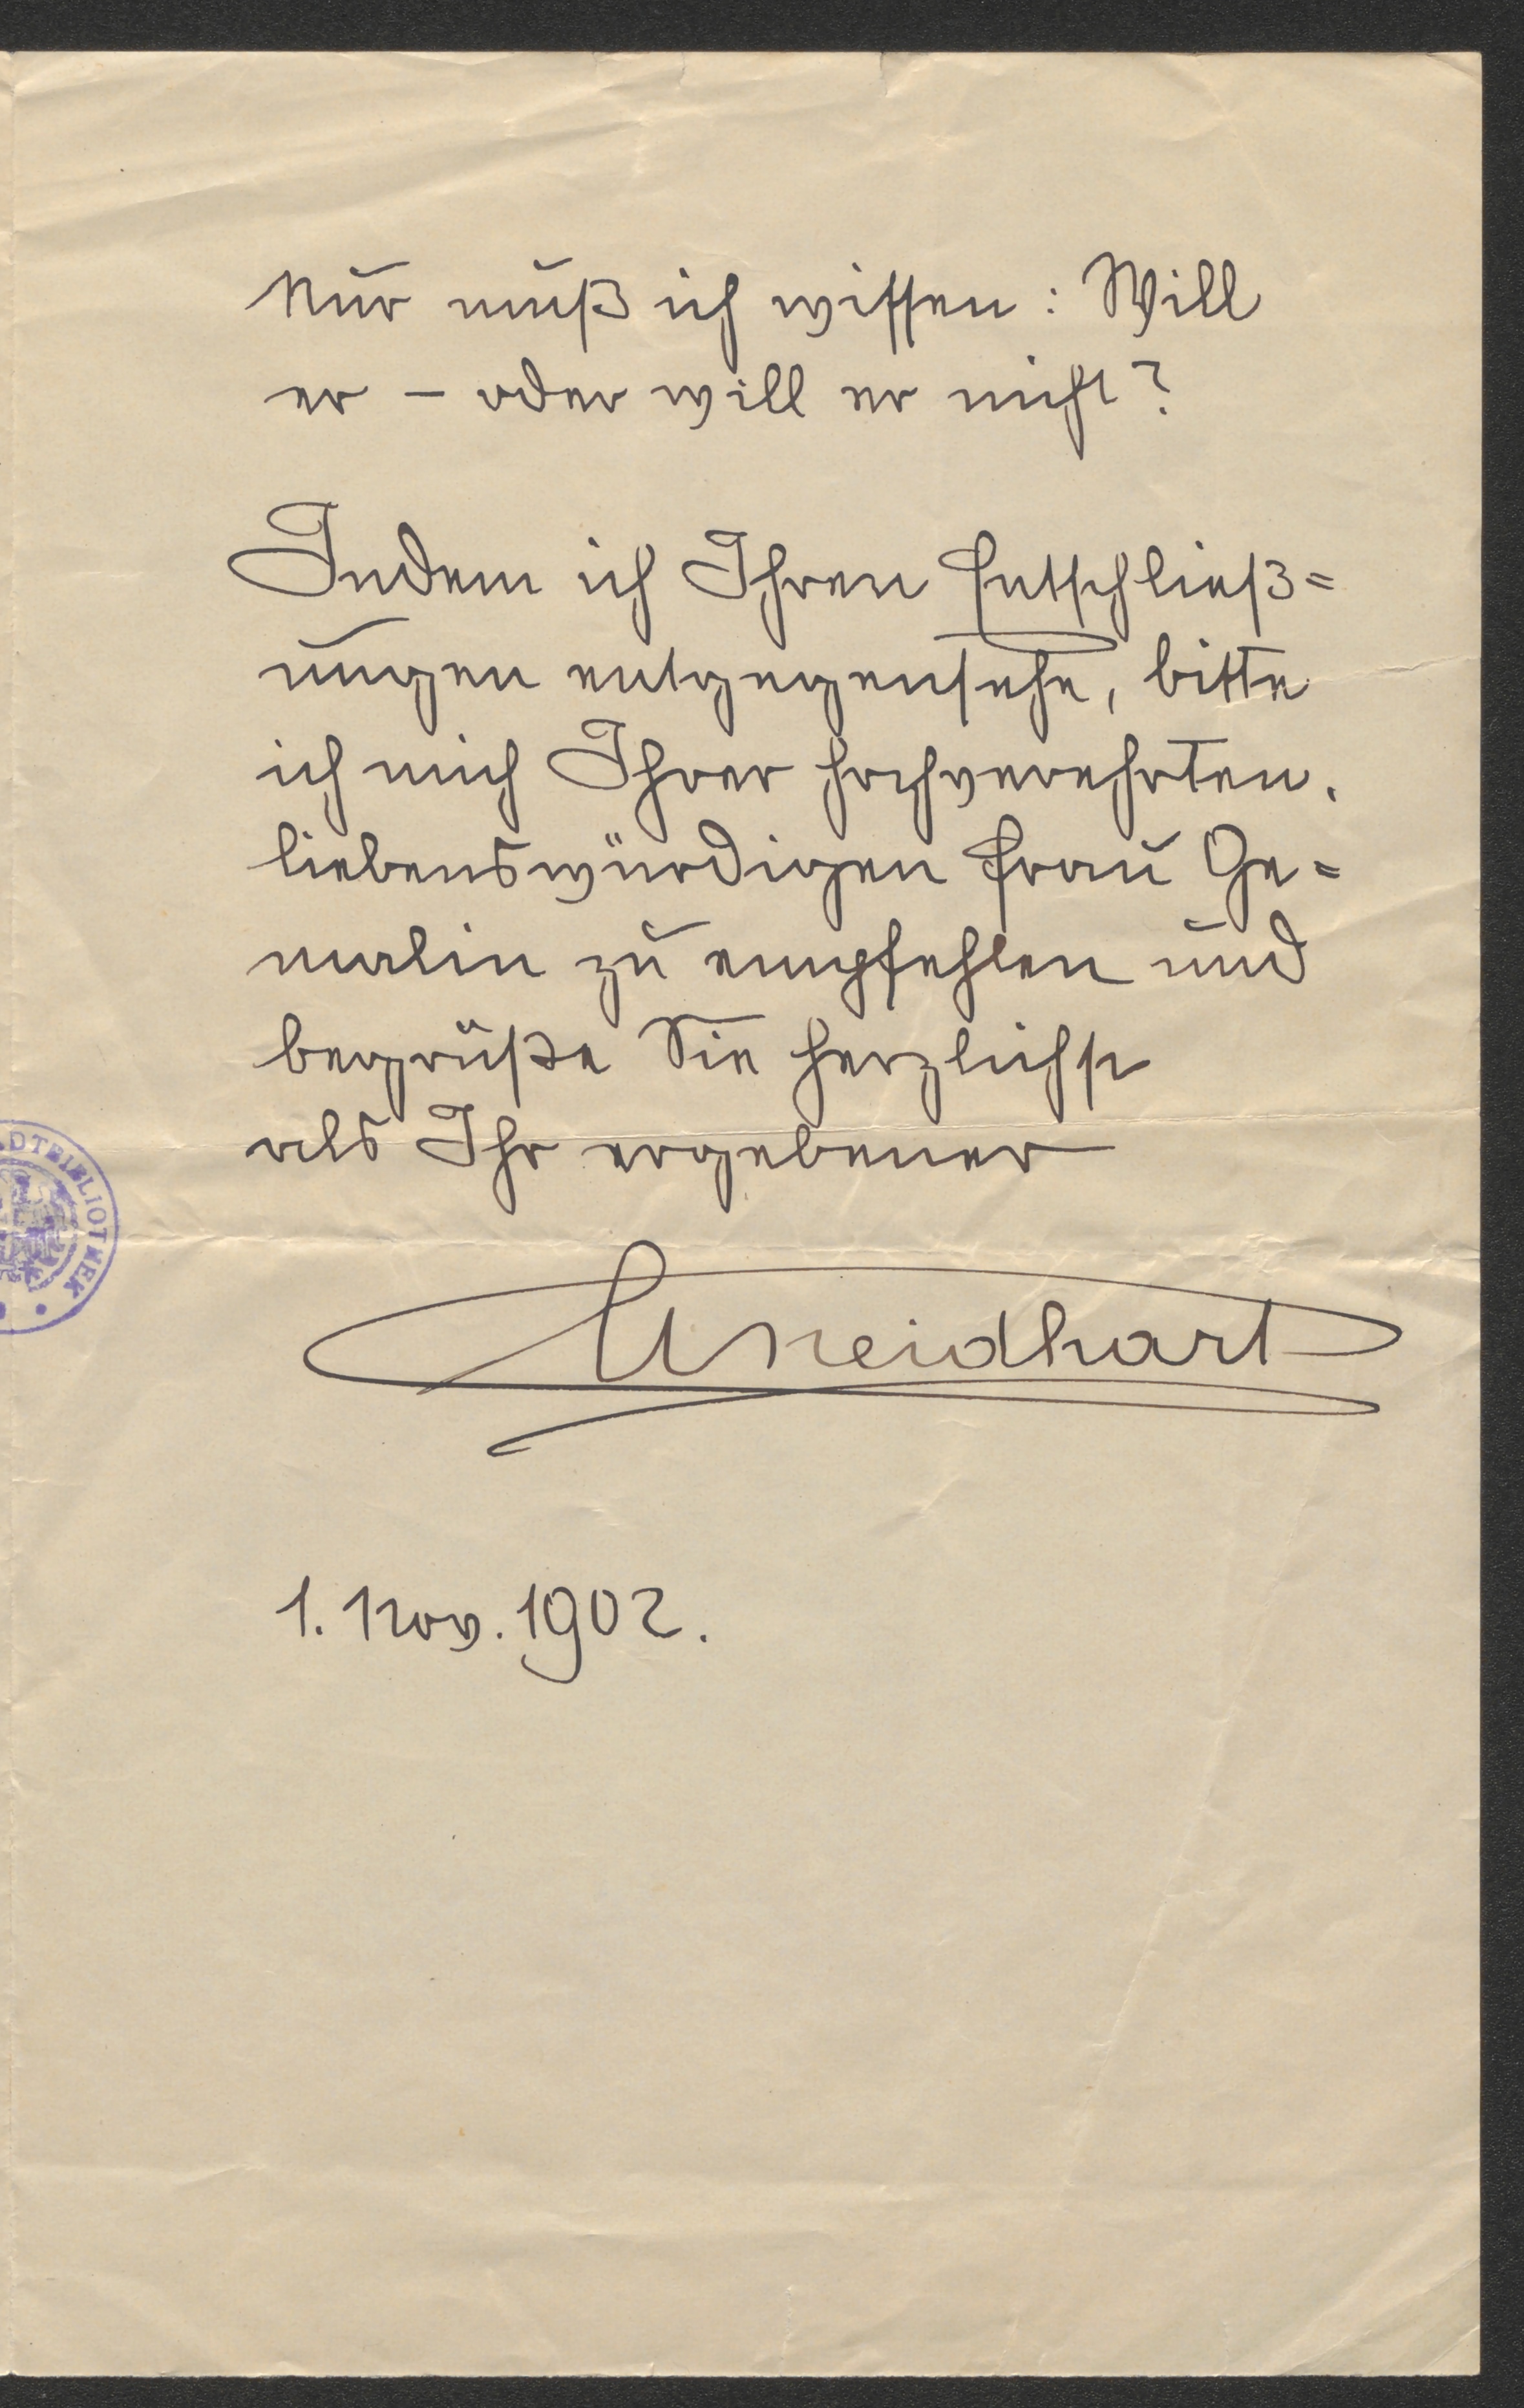 Nur muß ich wissen: Will
er – oder will er nicht?
Indem ich Ihren Entschließ=
ungen entgegensehe, bitte
ich mich Ihrer hochverehrten,
liebenswürdigen Frau Ge=
malin zu empfehlen und
begrüße Sie herzlichst
als Ihr ergebener
ANeidhart
DTBIBLIOTHEK
1. Nov. 1902.